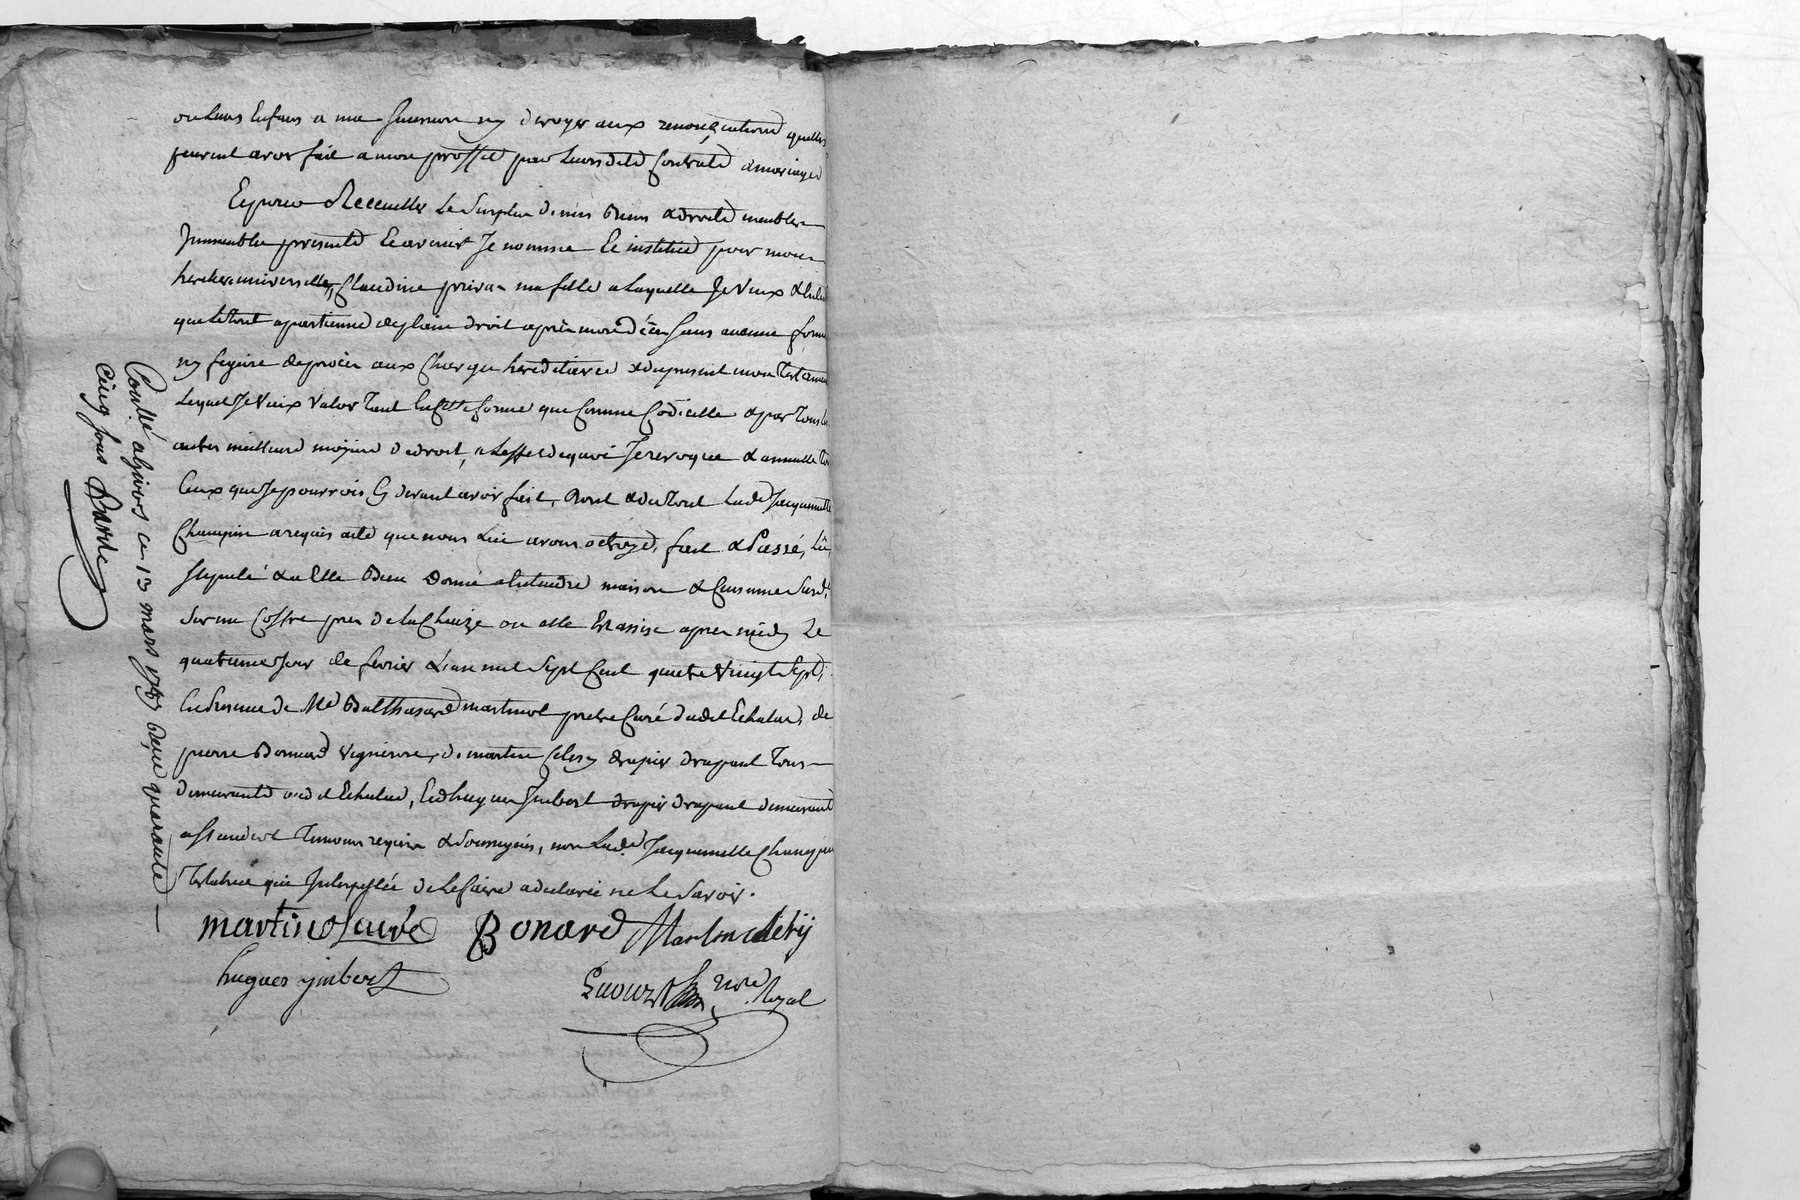 ou Leurs Enfans a ma succession ny deroger aux renonciations quelles
peuvent avoir fait a mon proffit par Leursdits Contrats de mariage
Et pour Receuillir Le Surplus de mes Biens & droits meubles
Immeubles presents Et avenir Je nomme Et institue pour mon
heritiere universelle, Claudine priva ma fille a Laquelle Je Veux &
que Le tout apartienne de plain droit apres mon décès sans aucune forme
ny figure de procès aux Charges hereditaires & du present mon Testament
Lequel Je Veux Valoir Tant En Cette forme que Comme Codicille & par Tous
autres meilleurs moyens de droit, a Leffet de quoi Je revoque & annulle
Ceux que Je pourrois Cy devant avoir fait, Dont & du Tout Lade Jacquemette
Champin a requis acte que nous Lui avons octroyé, fait & Passé, Lû,
Stipulé & a Elle Bien Donné a Entendre maison &
Sur un Coffre pres de la Cheize ou elle Est assise apres midy Le
quatrieme Jour de fevrier L'an mil Sept Cent quatre Vingt Sept,
En Presence de Me Balthazard martinol pretre Curé dudit Echalas, de
pierre Bonnard Vigneron, de martin drapier drapant Tous
demeurants audit Echalas, Et d'hugues Imbert drapier drapant demeurant
a St andeol Temoins requis & Soussignés, non Lade Jacquemette Champin
Testatrice qui Interpellée de Le faire a declaré ne Le Savoir.
martinol curé Bonard Martin
hugues ymbert
nore Royal
Contlé a givors ce 13 mars 1787 Reçu quarante
cinq sous Barde